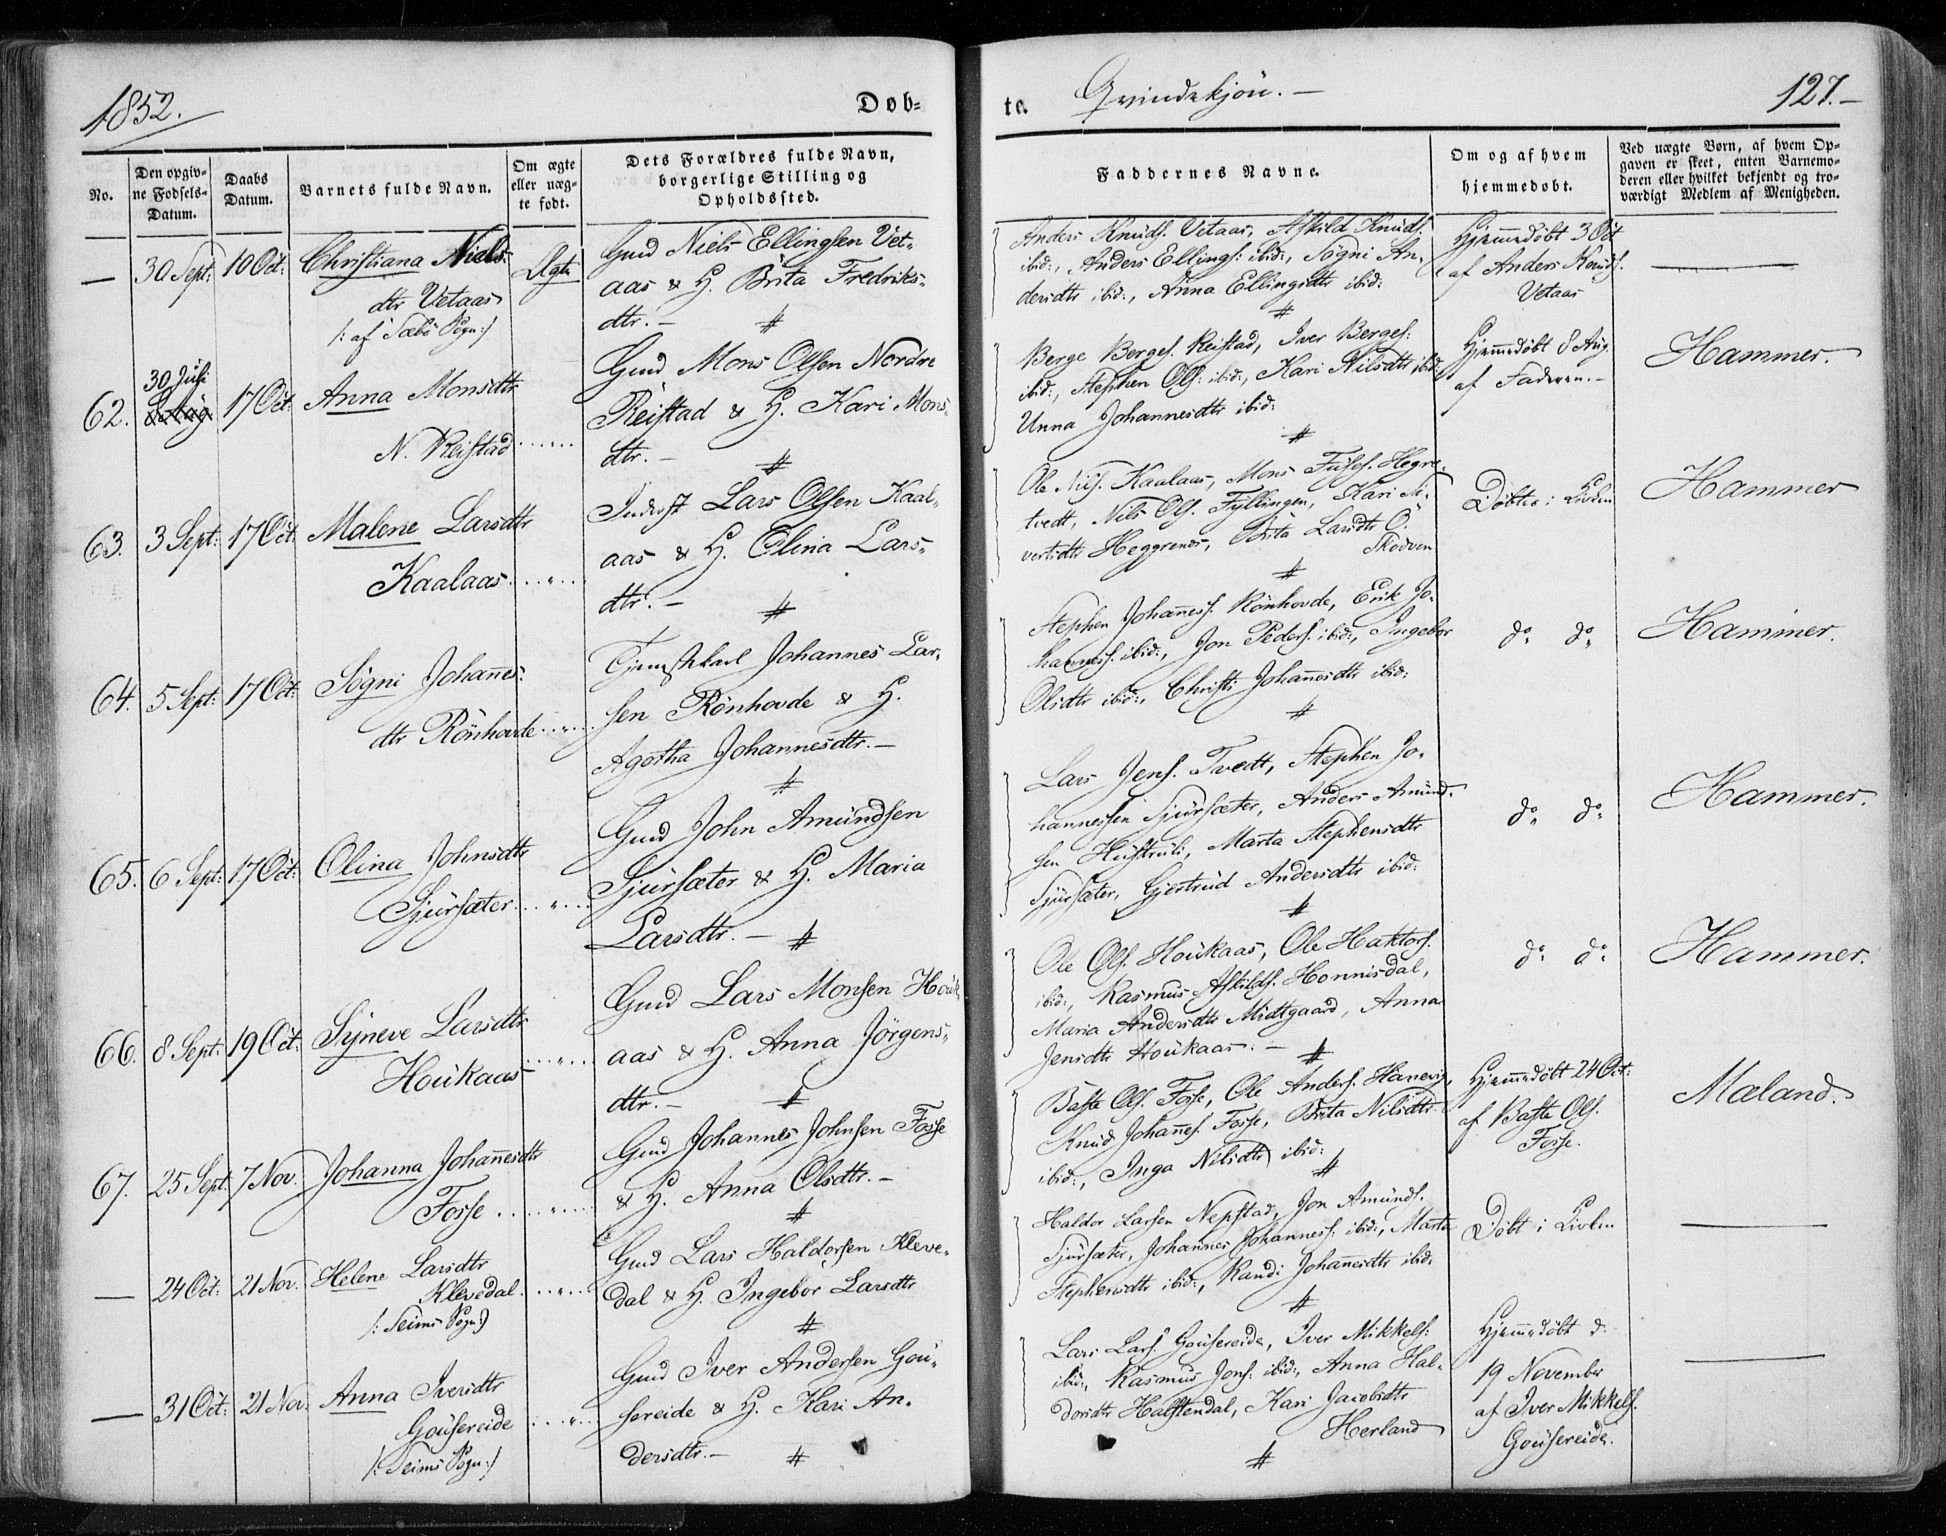 1852.
Døb-
te. Qvindekjön. —
127. —
No.
Den opgiv-
ne Fødsels-
Datum.
Daabs
Datum.
Barnets fulde Navn.
Om ægte
eller uæg-
te født.
Dets Forældres fulde Navn,
borgerlige Stilling og
Opholdssted.
Faddernes Navne.
Om og af hvem
hjemmedøbt.
Ved uægte Børn, af hvem Op-
gaven er skeet, enten Barnemo-
deren eller hvilket bekjendt og tro-
værdigt Medlem af Menigheden.
— 30 Sept: 10 Oct: Christiana Niels-
dtr Vetaas
/: af Sæbö Sogn:/
Ægte
Gmd Niels Ellingsen Vet-
aas & H. Brita Fredriks-
dtr. —
Anders Knuds. Vetaas, Askild Knuds.
ibid:, Anders Ellings: ibid:, Sögni An-
dersdtr ibid:, Anna Ellingsdtr ibid:
Hjemmedöbt 3 Oct
af Anders Knuds.
Vetaas
62. 30 Juli 17 Oct: Anna Monsdtr
N. Reistad
Gmd Mons Olsen Nordre
Reistad & H. Kari Mons-
dtr. —
Berge Berges. Reistad, Iver Berges:
ibid:, Stephen Ols: ibid:, Kari Nilsdtr ibid:
Unna Johannesdtr ibid:
Hjemmedöbt 8 Aug.
af Faderen. —
Hammer.
63. 3 Sept: 17 Oct: Malene Larsdtr
Kaalaas
Inderst Lars Olsen Kaal-
aas & H. Elina Lars-
dtr. —
Ole Nils. Kaalaas, Mons Hegre-
tvedt, Nils Ols. Fyllingen, Kari
Heggrenes, Brita Larsdtr Ö.
Skodven
Döbt i Kirken
Hammer
64. 5 Sept: 17 Oct: Sögni Johannes-
dtr Rönhovde
Tjenestkarl Johannes Lar-
sen Rönhovde & H.
Agotha Johannesdtr. —
Stephen Johaness. Rönhovde, Erik Jo-
hanness. ibid:, Jon Peders. ibid:, Ingebor
Olsdtr ibid:, Christi Johannesdtr ibid:
do do
Hammer.
65. 6 Sept: 17 Oct: Olina Johnsdtr
Sjursæter
Gmd John Amundsen
Sjursæter & H. Maria
Larsdtr. —
Lars Jens. Tvedt, Stephen Jo-
hannessen Sjursæter, Anders Amund-
sen Hustruli, Marta Stephensdtr
Sjursæter, Gjertrud Andersdtr ibid:
do do
Hammer.
66. 8 Sept: 19 Oct: Synneve Larsdtr
Houkaas
Gmd Lars Monsen Houk-
aas & H. Anna Jörgens-
dtr. —
Ole Ols. Houkaas, Ole Haktors.
ibid:, Rasmus Askilds. Honnisdal,
Maria Andersdtr Midtgaard, Anna
Jensdtr Houkaas. —
do do
Hammer.
67. 25 Sept. 7 Nov. Johanna Johannesdtr
Fosse
Gmd Johannes Johnsen Fosse
& H. Anna Olsdtr. —
Baste Ols. Fosse, Ole Anders. Hanevig,
Knud Johannes. Fosse, Brita Nilsdtr
ibid:, Inga Nilsdtr ibid:
Hjemmedöbt 24 Oct:
af Baste Ols.
Fosse.
Mæland.
— 24 Oct: 21 Nov. Helene Larsdtr
Klevedal
/: Seims Sogn:/
Gmd Lars Haldorsen Kleve-
dal & H. Ingebor Larsdtr
Haldor Larsen Nepstad, Jon Amunds.
Sjursæter, Johannes Johanness: ibid:, Marta
Stephensdtr ibid:, Randi Johannesdtr ibid.
Döbt i Kirken
— 31 Oct: 21 Nov. Anna Iversdtr
Gousereide
/: Seims Sogn:/
Gmd Iver Andersen Gou-
sereide & H. Kari An-
dersdtr. —
Lars Lars. Gousereide, Iver Mikkels:
ibid:, Rasmus Jons: ibid:, Anna Hal-
dorsdtr Halstendal, Kari Jacobsdtr
Herland
Hjemmedöbt d.
19 November
af Iver Mikkels.
Gousereide.